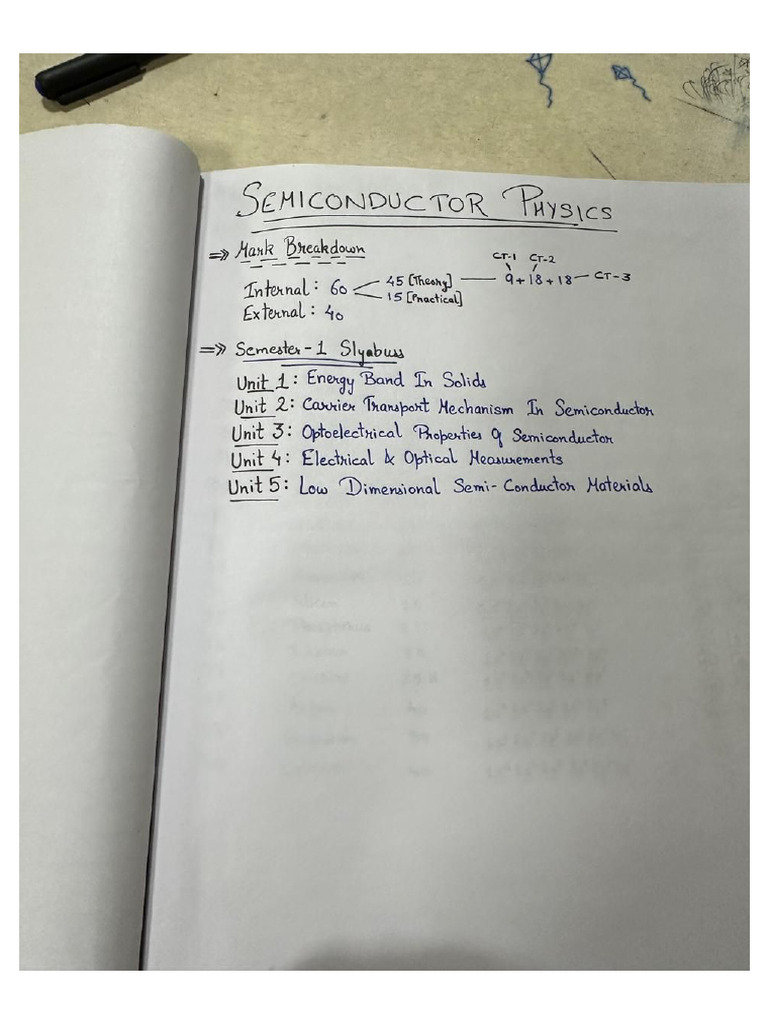 SEMICONDUCTOR PHYSICS
=>> Mark Breakdown
CT-1 CT-2
Internal : 60 < 45 [Theory] — 9 + 18 + 18 — CT-3
15 [Practical]
External : 40
=>> Semester - 1 Slyabuss
Unit 1 : Energy Band In Solids
Unit 2 : Carrier Transport Mechanism In Semiconductor
Unit 3 : Optoelectrical Properties of Semiconductor
Unit 4 : Electrical & Optical Measurements
Unit 5 : Low Dimensional Semi-Conductor Materials